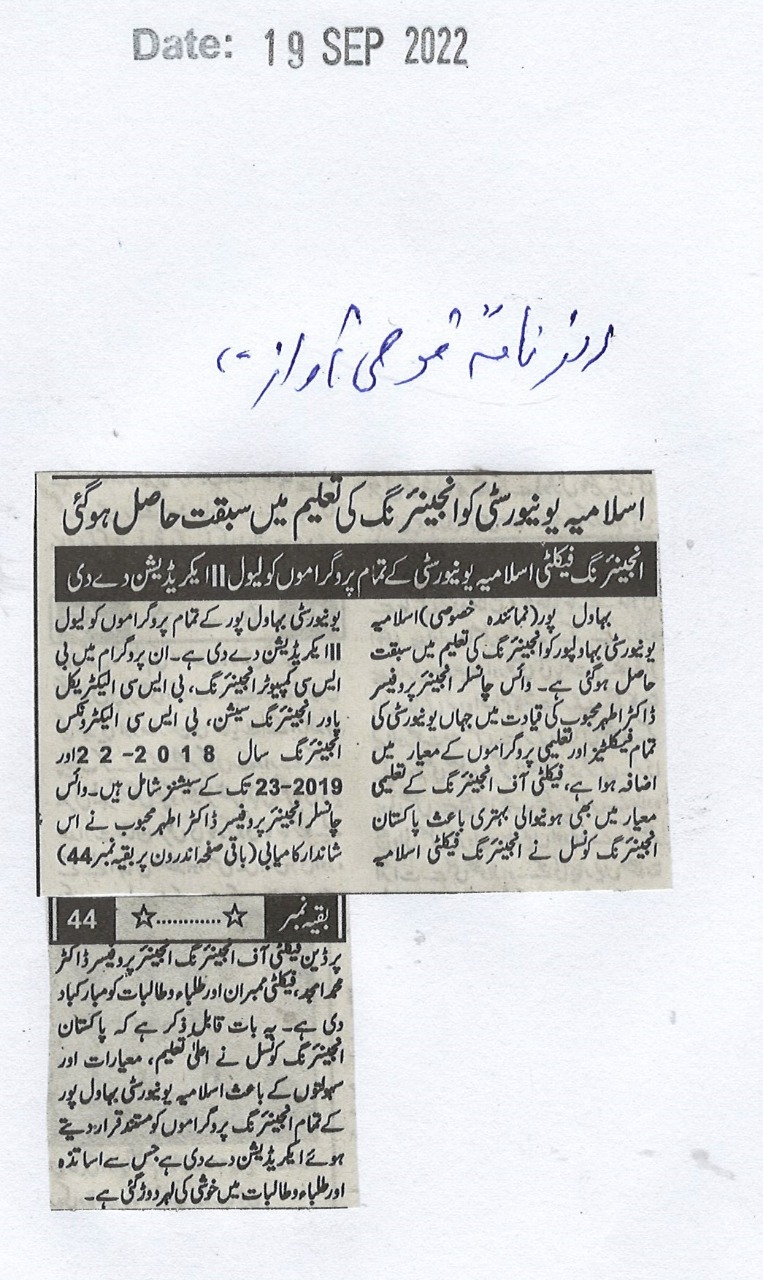 Date: 19 SEP 2022
روزنامہ قومی آواز
اسلامیہ یونیورسٹی کو انجینئرنگ کی تعلیم میں سبقت حاصل ہوگئی
انجینئرنگ فیکلٹی اسلامیہ یونیورسٹی کے تمام پروگراموں کو لیول II ایکریڈیشن دے دی
بہاول پور(نمائندہ خصوصی)اسلامیہ
یونیورسٹی بہاولپور کو انجینئرنگ کی تعلیم میں سبقت
حاصل ہوگئی ہے۔ وائس چانسلر انجینئر پروفیسر
ڈاکٹر اطہر محبوب کی قیادت میں جہاں یونیورسٹی کی
تمام فیکلٹیز اور تعلیمی پروگراموں کے معیار میں
اضافہ ہوا ہے، فیکلٹی آف انجینئرنگ کے تعلیمی
معیار میں بھی ہونیوالی بہتری باعث پاکستان
انجینئرنگ کونسل نے انجینئرنگ فیکلٹی اسلامیہ
یونیورسٹی بہاول پور کے تمام پروگراموں کو لیول
II ایکریڈیشن دے دی ہے۔ ان پروگرام میں بی
ایس سی کمپیوٹر انجینئرنگ، بی ایس سی الیکٹریکل
پاور انجینئرنگ سیشن، بی ایس سی الیکٹرونکس
انجینئرنگ سال 2018-22 اور
2019-23 تک کے سیشنز شامل ہیں۔ وائس
چانسلر انجینئر پروفیسر ڈاکٹر اطہر محبوب نے اس
شاندار کامیابی (باقی صفحہ اندرون پر بقیہ نمبر 44)
بقیہ نمبر ☆............☆ 44
پر ڈین فیکلٹی آف انجینئرنگ انجینئر پروفیسر ڈاکٹر
محمد امجد، فیکلٹی ممبران اور طلباء و طالبات کو مبارکباد
دی ہے۔ یہ بات قابل ذکر ہے کہ پاکستان
انجینئرنگ کونسل نے اعلیٰ تعلیم، معیارات اور
سہولتوں کے باعث اسلامیہ یونیورسٹی بہاول پور
کے تمام انجینئرنگ پروگراموں کو مستند قرار دیتے
ہوئے ایکریڈیشن دے دی ہے جس سے اساتذہ
اور طلباء و طالبات میں خوشی کی لہر دوڑ گئی ہے۔